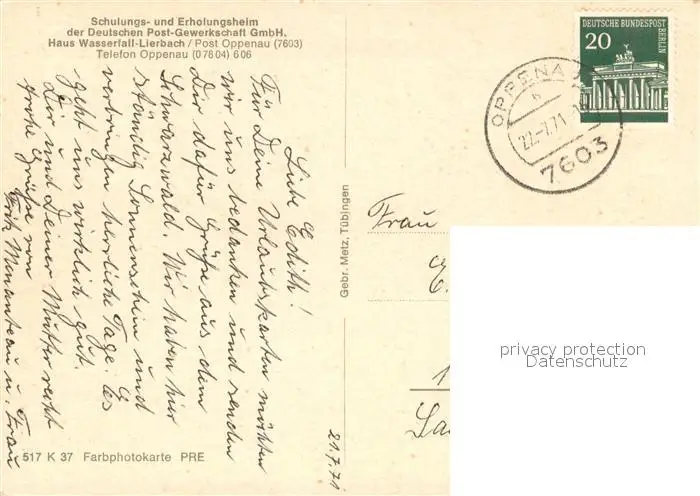 Schulungs- und Erholungsheim
der Deutschen Post-Gewerkschaft GmbH.
Haus Wasserfall-Lierbach / Post Oppenau (7603)
Telefon Oppenau (07804) 606
Liebe Edith!
Für Deine Urlaubskarten möchten
wir uns bedanken und senden
Dir dafür Grüße aus dem
Schwarzwald. Wir haben hier
ständig Sonnenschein und
verbringen herrliche Tage. Es
geht uns wirklich gut.
Dir und Deiner Mutter recht
frohe Grüße von
u. Frau
517 K 37 Farbphotokarte PRE
Gebr. Metz, Tübingen
21.7.71
DEUTSCHE BUNDESPOST
BERLIN
20
OPPENAU
22.-7.71
7603
Frau
E.
privacy protection
Datenschutz